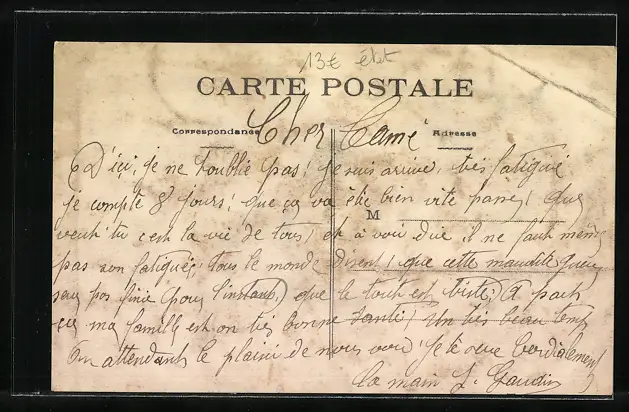 13€ état
CARTE POSTALE
Correspondance
Adresse
Cher Camé
D'ici, je ne t'oublie pas! je suis arrivé, très fatigué
je compte 8 jours! que ça va être bien vite passé! Que
M
veut tu c'est la vie de tous! et à voir dire il ne faut même
pas son fatigués, tous le monde disent! que cette maudite guerre
sera pas finie pour l'instant, que le tout est triste; A part
ça ma famille est en très bonne santé! Un très beau temps
En attendant le plaisir de nous voir je te serre cordialement
la main J. Gaudin